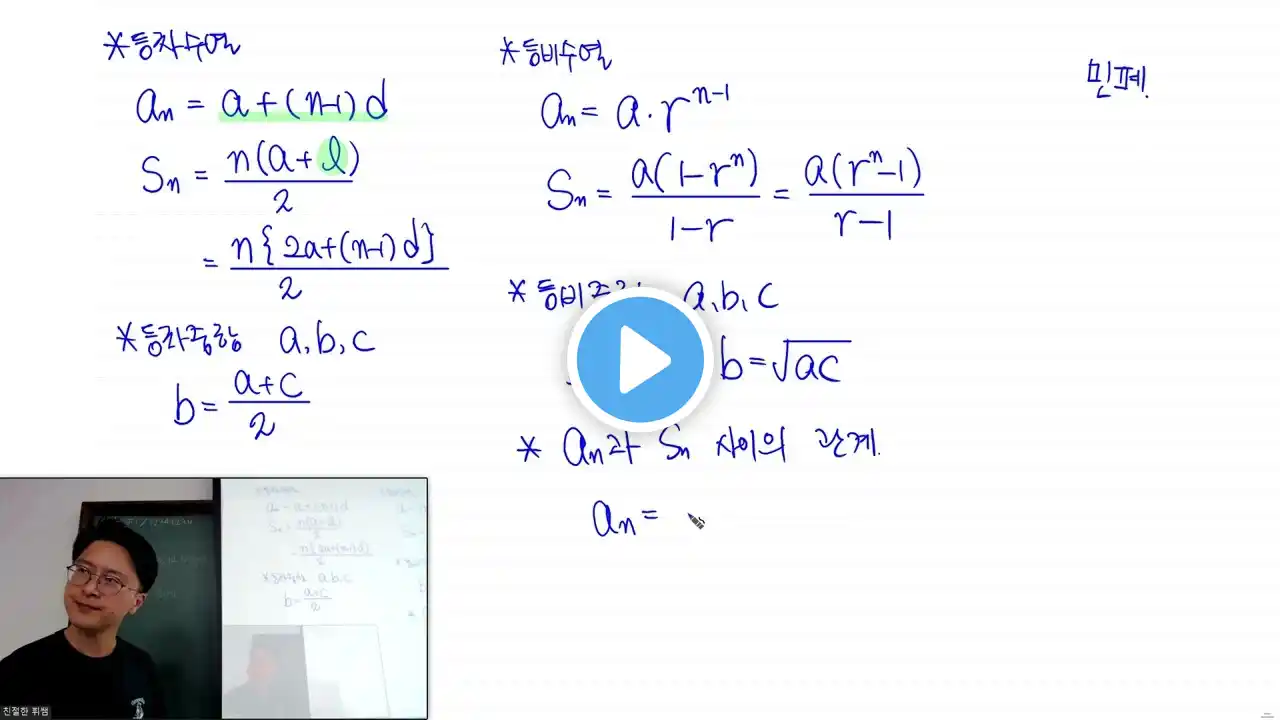 *등차수열
aₙ = a+(n-1)d
Sₙ = n(a+l)/2
= n{2a+(n-1)d}/2
*등차중항 a, b, c
b = (a+c)/2
*등비수열
aₙ = a·rⁿ⁻¹
Sₙ = a(1-rⁿ)/(1-r) = a(rⁿ-1)/(r-1)
*등비중항 a, b, c
b=√ac
* aₙ과 Sₙ 사이의 관계.
aₙ =
민폐.
친절한 휘쌤